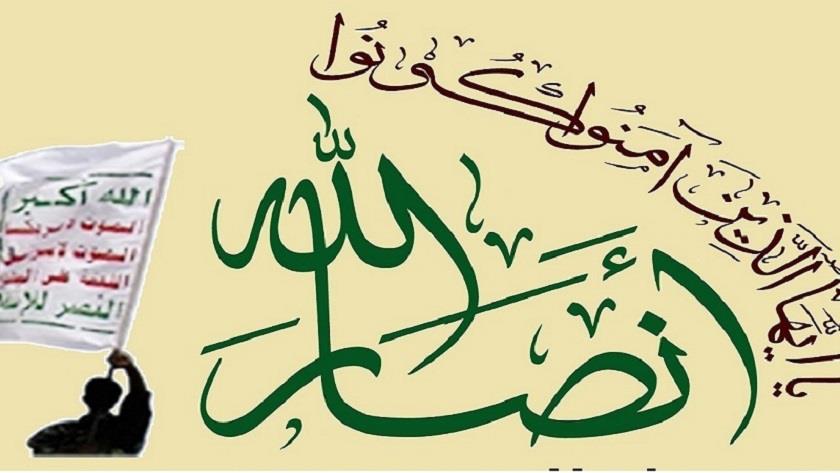 يا أيها الذين آمنوا كونوا
أنصار الله
الله أكبر
الموت لأمريكا
الموت
اللعنة على
النصر